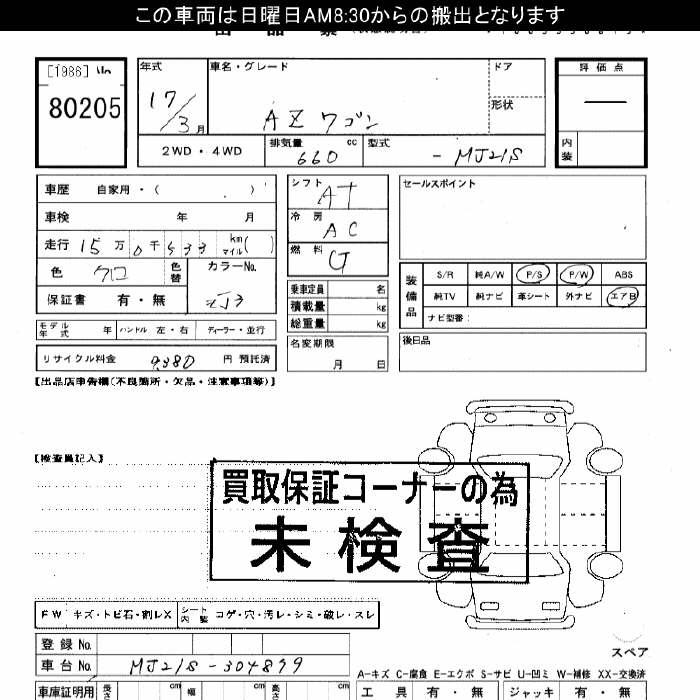 この車両は日曜日AM8:30からの搬出となります
[1986]
80205
年式
17/3月
車名・グレード
AZワゴン
ドア
形状
評価点
内装
2WD・4WD
排気量
660
cc
型式
-MJ21S
車歴 自家用・( )
車検 年 月
走行 15万0千533 km マイル( )
色 クロ
色替
カラーNo.
ZJ3
保証書 有・無
シフト AT
冷房 AC
燃料 G
乗車定員 名
積載量 kg
総重量 kg
セールスポイント
装備品
S/R 純A/W P/S P/W ABS
純TV 純ナビ 革シート 外ナビ エアB
ナビ型番:
モデル年式 年 ハンドル 左・右 ディーラー・並行
リサイクル料金 9,380 円 預託済
名変期限
月 日
後日品
【出品店申告欄(不良箇所・欠品・注意事項等)】
【検査員記入】
買取保証コーナーの為
未検査
FW キズ・トビ石・割レX
シート内装 コゲ・穴・汚レ・シミ・破レ・スレ
スペア
登録No.
車台No. MJ21S-304899
A-キズ C-腐食 E-エクボ S-サビ U-凹ミ W-補修 XX-交換済
車庫証明用 長さ cm 幅 cm 高さ cm
工具 有・無 ジャッキ 有・無